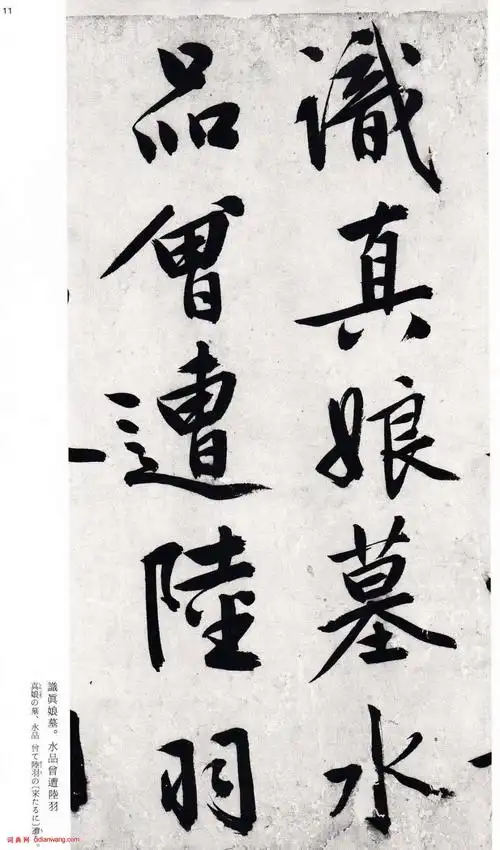 11
識真娘墓水
品曾遭陸羽
識眞娘墓。水品曾遭陸羽
真娘の墓、水品 曾て陸羽の〔來たるに〕遭
词典网 cidianwang.com